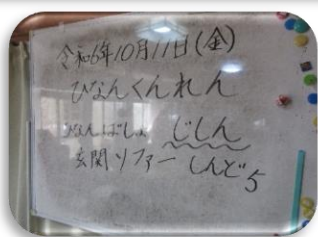 令和6年10月11日(金)
ひなんくんれん
ひなんばしょ じしん
玄関ソファー しんど5